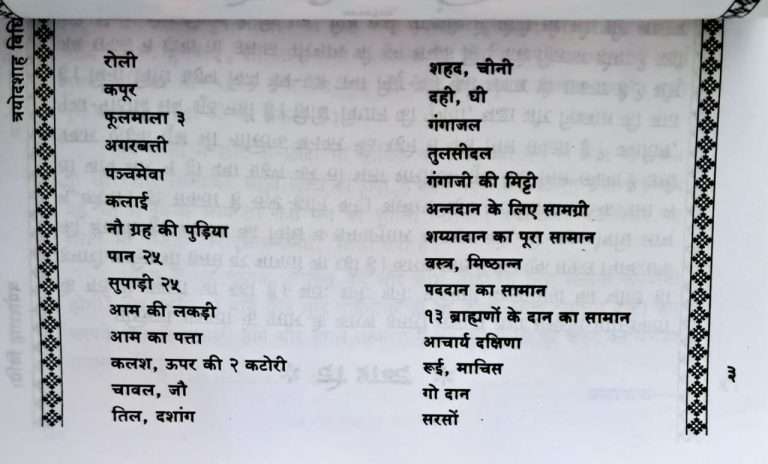 त्रयोदशाह विधि
रोली
कपूर
फूलमाला ३
अगरबत्ती
पञ्चमेवा
कलाई
नौ ग्रह की पुड़िया
पान २५
सुपाड़ी २५
आम की लकड़ी
आम का पत्ता
कलश, ऊपर की २ कटोरी
चावल, जौ
तिल, दशांग
शहद, चीनी
दही, घी
गंगाजल
तुलसीदल
गंगाजी की मिट्टी
अन्नदान के लिए सामग्री
शय्यादान का पूरा सामान
वस्त्र, मिष्ठान्न
पददान का सामान
१३ ब्राह्मणों के दान का सामान
आचार्य दक्षिणा
रूई, माचिस
गो दान
सरसों
३